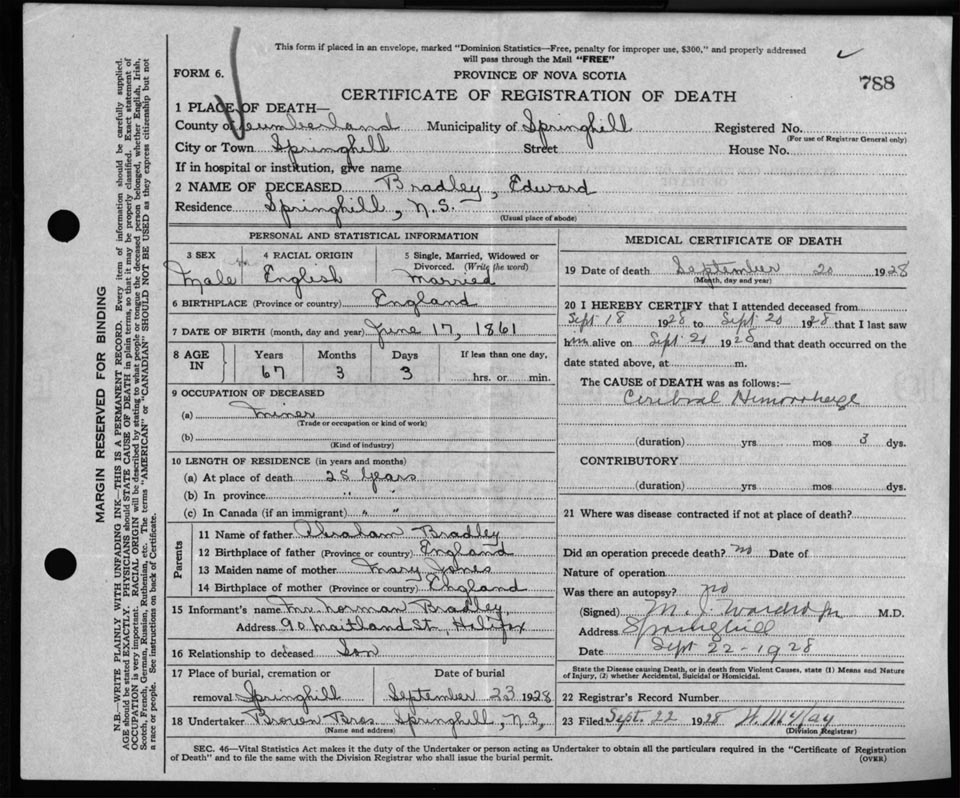 This form if placed in an envelope, marked "Dominion Statistics—Free, penalty for improper use, $300," and properly addressed
will pass through the Mail "FREE"
FORM 6.
PROVINCE OF NOVA SCOTIA
788
CERTIFICATE OF REGISTRATION OF DEATH
1 PLACE OF DEATH—
County of Cumberland Municipality of Springhill Registered No.
(For use of Registrar General only)
City or Town Springhill Street House No.
If in hospital or institution, give name
2 NAME OF DECEASED Bradley, Edward
Residence Springhill, N.S.
(Usual place of abode)
PERSONAL AND STATISTICAL INFORMATION
3 SEX 4 RACIAL ORIGIN 5 Single, Married, Widowed or
Divorced. (Write the word)
Male English Married
6 BIRTHPLACE (Province or country) England
7 DATE OF BIRTH (month, day and year) June 17, 1861
8 AGE IN Years Months Days If less than one day,
67 3 3 hrs. or min.
9 OCCUPATION OF DECEASED
(a) Miner
(Trade or occupation or kind of work)
(b)
(Kind of industry)
10 LENGTH OF RESIDENCE (in years and months)
(a) At place of death 28 Years
(b) In province " "
(c) In Canada (if an immigrant) " "
Parents
11 Name of father Abraham Bradley
12 Birthplace of father (Province or country) England
13 Maiden name of mother Mary Jones
14 Birthplace of mother (Province or country) England
15 Informant's name Mr. Norman Bradley,
Address 90 Maitland St., Halifax
16 Relationship to deceased Son
17 Place of burial, cremation or Date of burial
removal Springhill September 23 1928
18 Undertaker Brown Bros. Springhill, N.S,
(Name and address)
MEDICAL CERTIFICATE OF DEATH
19 Date of death September 20 1928
(Month, day and year)
20 I HEREBY CERTIFY that I attended deceased from
Sept 18 1928 to Sept 20 1928 that I last saw
him alive on Sept 20 1928 and that death occurred on the
date stated above, at m.
The CAUSE of DEATH was as follows:—
Cerebral Hemorrhage
(duration) yrs mos 3 dys.
CONTRIBUTORY
(duration) yrs. mos. dys.
21 Where was disease contracted if not at place of death?
Did an operation precede death? no Date of
Nature of operation
Was there an autopsy? no
(Signed) M. J. Wardrope M.D.
Address Springhill
Date Sept 22-1928
State the Disease causing Death, or in death from Violent Causes, state (1) Means and Nature
of Injury, (2) whether Accidental, Suicidal or Homicidal.
22 Registrar's Record Number
23 Filed Sept. 22 1928
(Division Registrar)
SEC. 46—Vital Statistics Act makes it the duty of the Undertaker or person acting as Undertaker to obtain all the particulars required in the "Certificate of Registration
of Death" and to file the same with the Division Registrar who shall issue the burial permit.
(OVER)
MARGIN RESERVED FOR BINDING
N.B.—WRITE PLAINLY WITH UNFADING INK—THIS IS A PERMANENT RECORD. Every item of information should be carefully supplied.
AGE should be stated EXACTLY. PHYSICIANS should STATE CAUSE OF DEATH in plain terms, so that it may be properly classified. Exact statement of
OCCUPATION is very important. RACIAL ORIGIN will be described by stating to what people or tongue the deceased person belonged, whether English, Irish,
Scotch, French, German, Russian, Ruthenian, etc. The terms "AMERICAN" or "CANADIAN" SHOULD NOT BE USED as they express citizenship but not
a race or people. See instructions on back of Certificate.